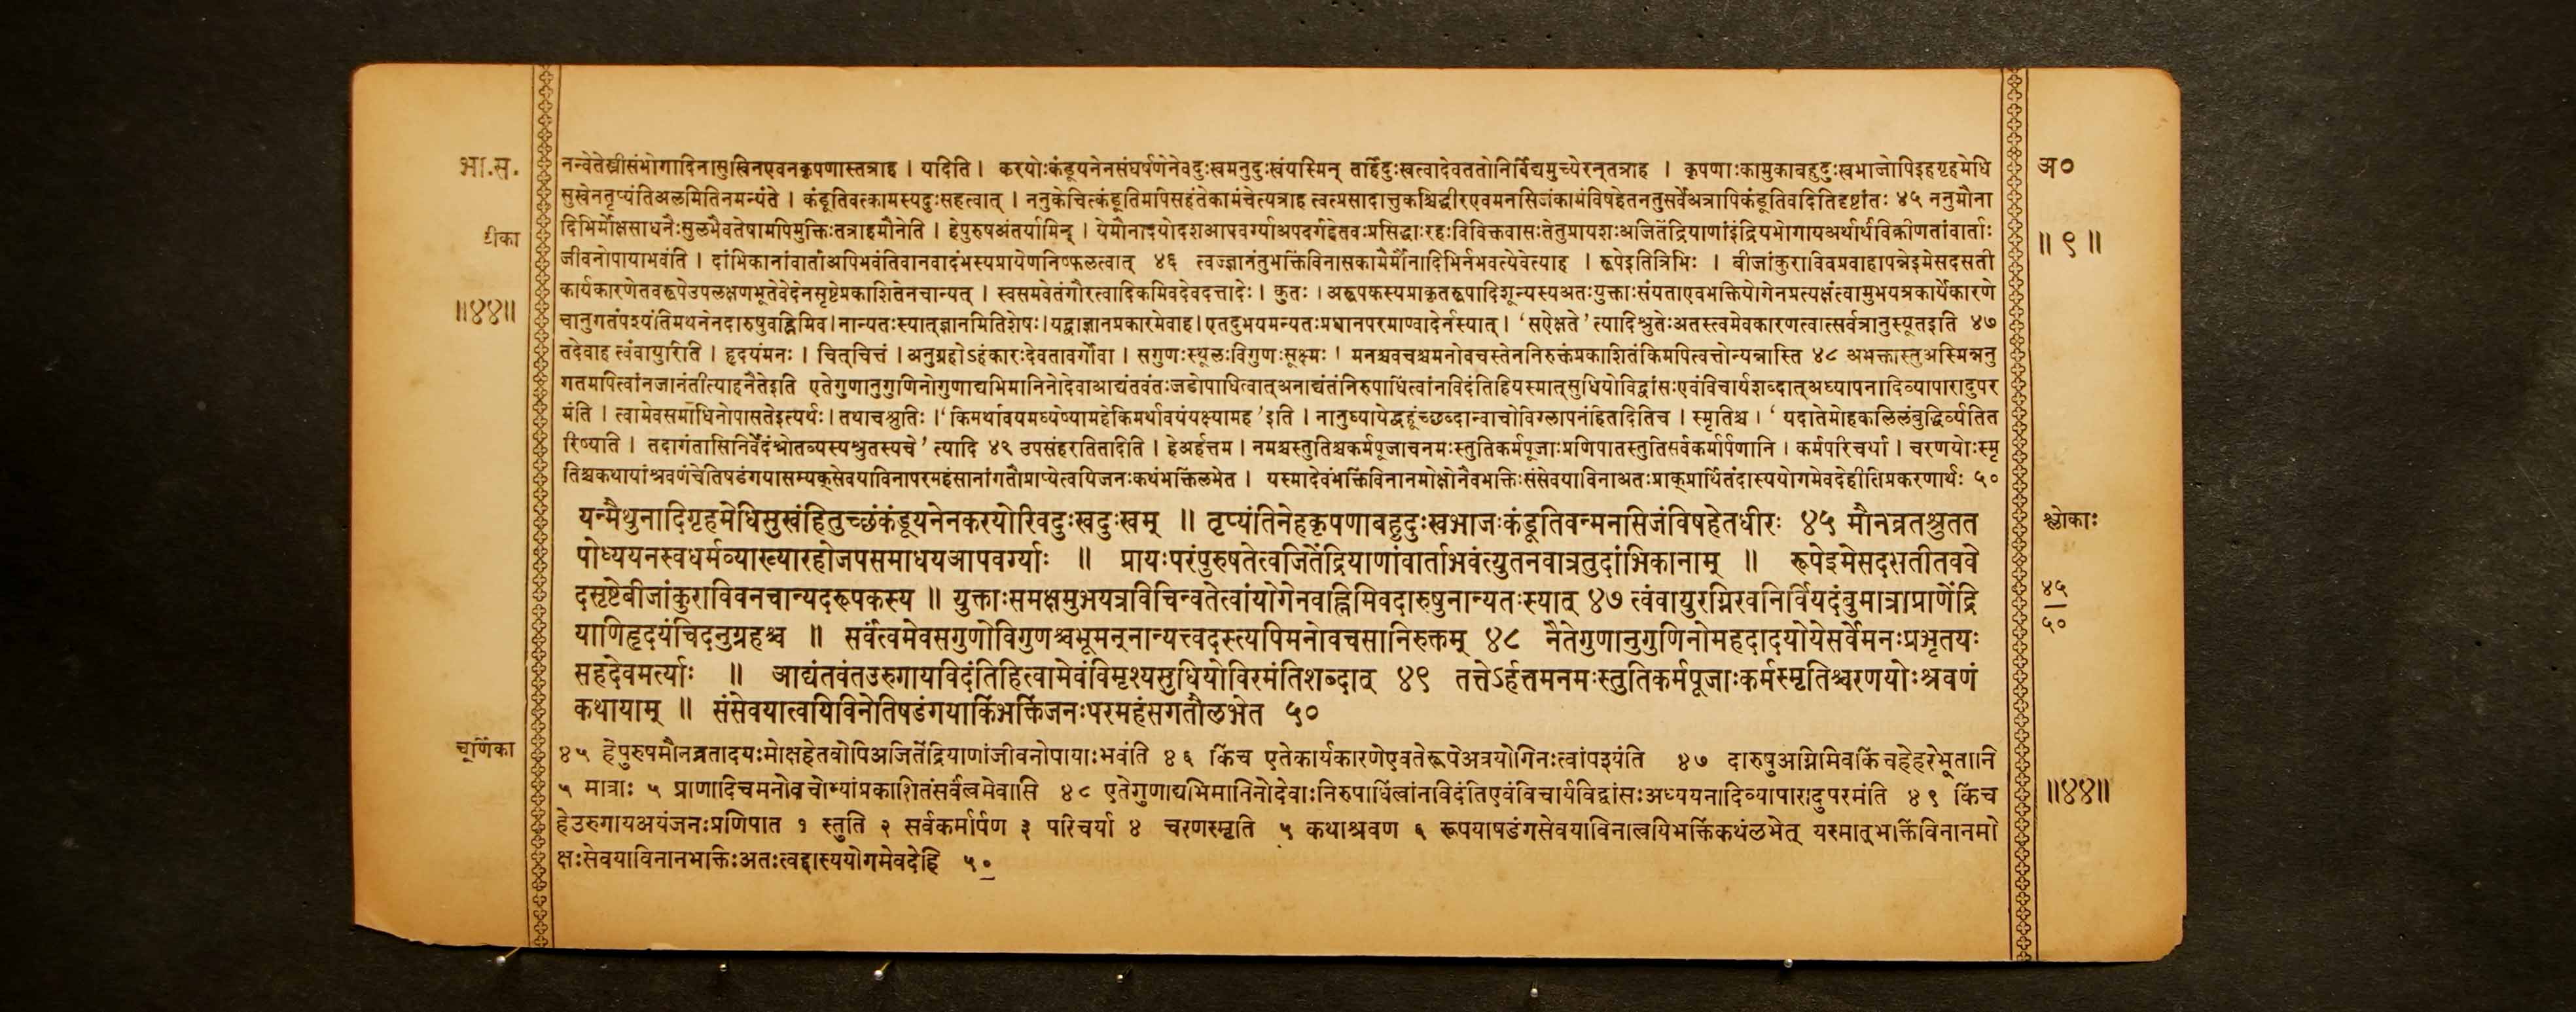 भा.स.
टीका
॥४४॥
नन्वेतेस्त्रीसंभोगादिनासुखिनएवनकृपणास्तत्राह । यदिति । करयोःकंडूयनेनसंघर्षणेनेवदुःखमनुदुःखंयस्मिन् तर्हिदुःखत्वादेवततोनिर्विद्यमुच्येरन्तत्राह । कृपणाःकामुकाबहुदुःखभाजोपिइहगृहमेधि
सुखेनतृप्यंतिअलमितिनमन्यंते । कंडूतिवत्कामस्यदुःसहत्वात् । ननुकेचित्कंडूतिमपिसहंतेकामंचेत्यत्राह त्वत्प्रसादात्तुकश्चिद्धीरएवमनसिजंकामंविषहेतनतुसर्वेअत्रापिकंडूतिवदितिदृष्टांतः ४५ ननुमौना
दिभिर्मोक्षसाधनैःसुलभैवतेषामपिमुक्तिःतत्राहमौनेति । हेपुरुषअंतर्यामिन् । येमौनादयोदशआपवर्ग्याअपवर्गहेतवःप्रसिद्धाःरहःविविक्तवासःतेतुप्रायशःअजितेंद्रियाणांइंद्रियभोगायअर्थार्थविक्रीणतांवार्ताः
जीवनोपायाभवंति । दांभिकानांवार्ताअपिभवंतिवानवादंभस्यप्रायेणनिष्फलत्वात् ४६ त्वज्ज्ञानंतुभक्तिंविनासकामैर्मौनादिभिर्नभवत्येवेत्याह । रूपेइतित्रिभिः । बीजांकुराविवप्रवाहापन्नेइमेसदसती
कार्यकारणेतवरूपेउपलक्षणभूतेवेदेनसृष्टेप्रकाशितेनचान्यत् । स्वसमवेतंगौरत्वादिकमिवदेवदत्तादेः । कुतः । अरूपकस्यप्राकृतरूपादिशून्यस्यअतःयुक्ताःसंयताएवभक्तियोगेनप्रत्यक्षंत्वामुभयत्रकार्येकारणे
चानुगतंपश्यंतिमथनेनदारुषुवह्निमिव।नान्यतःस्यात्ज्ञानमितिशेषः।यद्वाज्ञानप्रकारमेवाह।एतदुभयमन्यतःप्रधानपरमाण्वादेर्नस्यात् । ‘सऐक्षते’त्यादिश्रुतेःअतस्त्वमेवकारणत्वात्सर्वत्रानुस्यूतइति ४७
तदेवाह त्वंवायुरिति । हृदयंमनः । चित्चित्तं । अनुग्रहोऽहंकारःदेवतावर्गोवा । सगुणःस्थूलःविगुणःसूक्ष्मः । मनश्चवचश्चमनोवचस्तेननिरुक्तंप्रकाशितंकिमपित्वत्तोन्यन्नास्ति ४८ अभक्तास्तुअस्मिन्ननु
गतमपित्वांनजानंतीत्याहनैतेइति एतेगुणानुगुणिनोगुणाद्यभिमानिनोदेवाआद्यंतवंतःजडोपाधित्वात्अनाद्यंतंनिरुपाधिंत्वांनविदंतिहियस्मात्सुधियोविद्वांसःएवंविचार्यशब्दात्अध्यापनादिव्यापारादुपर
मंति । त्वामेवसमाधिनोपासतेइत्यर्थः। तथाचश्रुतिः ।‘किमर्थावयमध्येष्यामहेकिमर्थावयंयक्ष्यामह’इति । नानुध्यायेद्बहूंच्छब्दान्वाचोविग्लापनंहितदितिच । स्मृतिश्च । ‘ यदातेमोहकलिलंबुद्धिर्व्यतित
रिष्याति । तदागंतासिनिर्वेदंश्रोतव्यस्यश्रुतस्यचे’ त्यादि ४९ उपसंहरतितदिति । हेअर्हत्तम । नमश्चस्तुतिश्चकर्मपूजाचनमःस्तुतिकर्मपूजाःप्रणिपातस्तुतिसर्वकर्मार्पणानि । कर्मपरिचर्या । चरणयोःस्मृ
तिश्चकथायांश्रवणंचेतिषडंगयासम्यक्सेवयाविनापरमहंसानांगतौप्राप्येत्वयिजनःकथंभक्तिंलभेत । यस्मादेवंभक्तिंविनानमोक्षोनैवभक्तिःसंसेवयाविनाअतःप्राक्प्रार्थितंदास्ययोगमेवदेहीतिप्रकरणार्थः ५०
यन्मैथुनादिगृहमेधिसुखंहितुच्छंकंडूयनेनकरयोरिवदुःखदुःखम् ॥ तृप्यंतिनेहकृपणाबहुदुःखभाजःकंडूतिवन्मनसिजंविषहेतधीरः ४५ मौनव्रतश्रुतत
पोध्ययनस्वधर्मव्याख्यारहोजपसमाधयआपवर्ग्याः ॥ प्रायःपरंपुरुषतेत्वजितेंद्रियाणांवार्ताभवंत्युतनवात्रतुदांभिकानाम् ॥ रूपेइमेसदसतीतववे
दसृष्टेबीजांकुराविवनचान्यदरूपकस्य ॥ युक्ताःसमक्षमुभयत्रविचिन्वतेत्वांयोगेनवह्निमिवदारुषुनान्यतःस्यात् ४७ त्वंवायुरग्निरवनिर्वियदंबुमात्राप्राणेंद्रि
याणिहृदयंचिदनुग्रहश्च ॥ सर्वंत्वमेवसगुणोविगुणश्चभूमन्नान्यत्त्वदस्त्यपिमनोवचसानिरुक्तम् ४८ नैतेगुणानुगुणिनोमहदादयोयेसर्वेमनःप्रभृतयः
सहदेवमर्त्याः ॥ आद्यंतवंतउरुगायविदंतिहित्वामेवंविमृश्यसुधियोविरमंतिशब्दात् ४९ तत्तेऽर्हत्तमनमःस्तुतिकर्मपूजाःकर्मस्मृतिश्चरणयोःश्रवणं
कथायाम् ॥ संसेवयात्वयिविनेतिषडंगयाकिंभक्तिंजनःपरमहंसगतौलभेत ५०
चूर्णिका
४५ हेपुरुषमौनव्रतादयःमोक्षहेतवोपिअजितेंद्रियाणांजीवनोपायाःभवंति ४६ किंच एतेकार्यकारणेएवतेरूपेअत्रयोगिनःत्वांपश्यंति ४७ दारुषुअग्निमिवकिंचहेहरेभूतानि
५ मात्राः ५ प्राणादिचमनोवचोभ्यांप्रकाशितंसर्वंत्वमेवासि ४८ एतेगुणाद्यभिमानिनोदेवाःनिरुपाधिंत्वांनविदंतिएवंविचार्यविद्वांसःअध्ययनादिव्यापारादुपरमंति ४९ किंच
हेउरुगायअयंजनःप्रणिपात १ स्तुति २ सर्वकर्मार्पण ३ परिचर्या ४ चरणस्मृति ५ कथाश्रवण ६ रूपयाषडंगसेवयाविनात्वयिभक्तिंकथंलभेत् यस्मात्भक्तिंविनानमो
क्षःसेवयाविनानभक्तिःअतःत्वद्दास्ययोगमेवदेहि ५०
अ०
॥ ९ ॥
श्लोकाः
४५
५०
॥४४॥